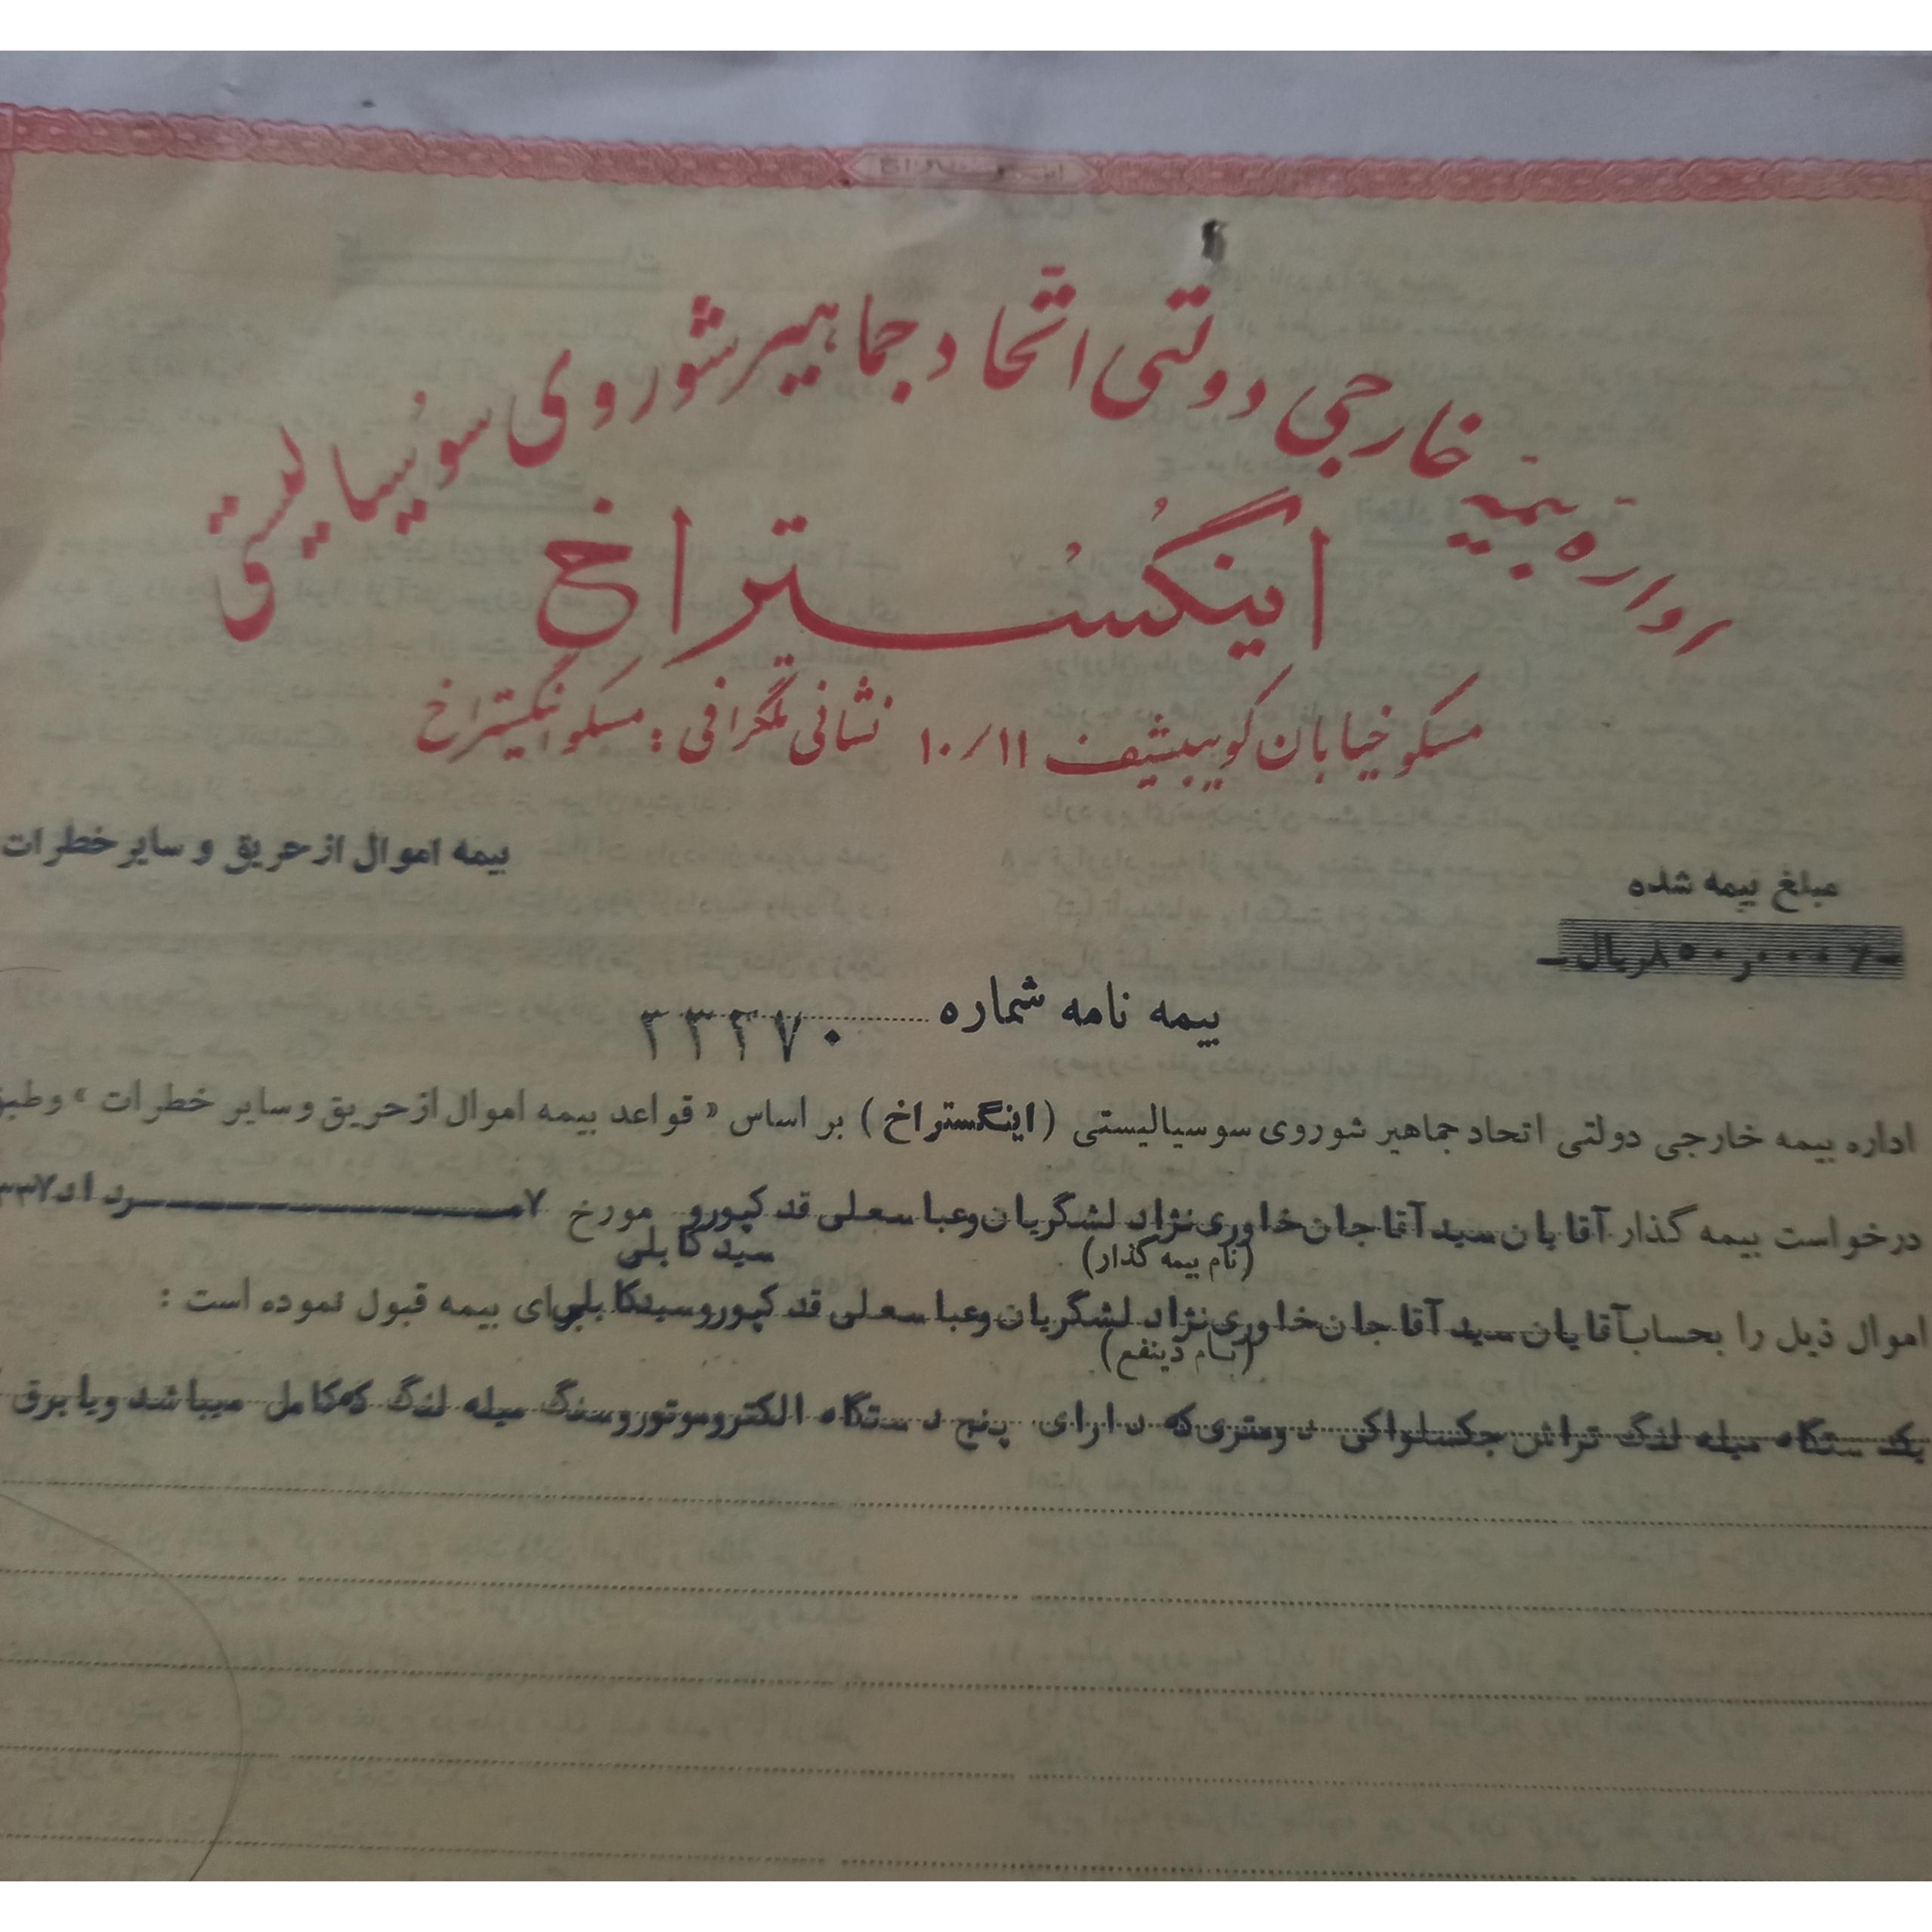 اداره بیمه خارجی دولتی اتحاد جماهیر شوروی سوسیالیستی
اینگستراخ
مسکو خیابان کویبیشف ۱۰/۱۱ نشانی تلگرافی : مسکو اینگستراخ
بیمه اموال از حریق و سایر خطرات
مبلغ بیمه شده
بیمه نامه شماره ۳۳۲۷۰
اداره بیمه خارجی دولتی اتحاد جماهیر شوروی سوسیالیستی (اینگستراخ) بر اساس «قواعد بیمه اموال از حریق و سایر خطرات» وطبق
درخواست بیمه گذار آقایان سید آقا جان خاوری نژاد لشگریان وعباسعلی قد کپورو مورخ ۷
سید کابلی
(نام بیمه گذار)
اموال ذیل را بحساب آقایان سید آقا جان خاوری نژاد لشگریان وعباسعلی قد کپورو سیدکابلی برای بیمه قبول نموده است :
(نام ذینفع)
یکدستگاه میله لنگ تراش چکسلواکی دومتری که دارای پنج دستگاه الکتروموتور وسنگ میله لنگ که کامل میباشد ویا برق